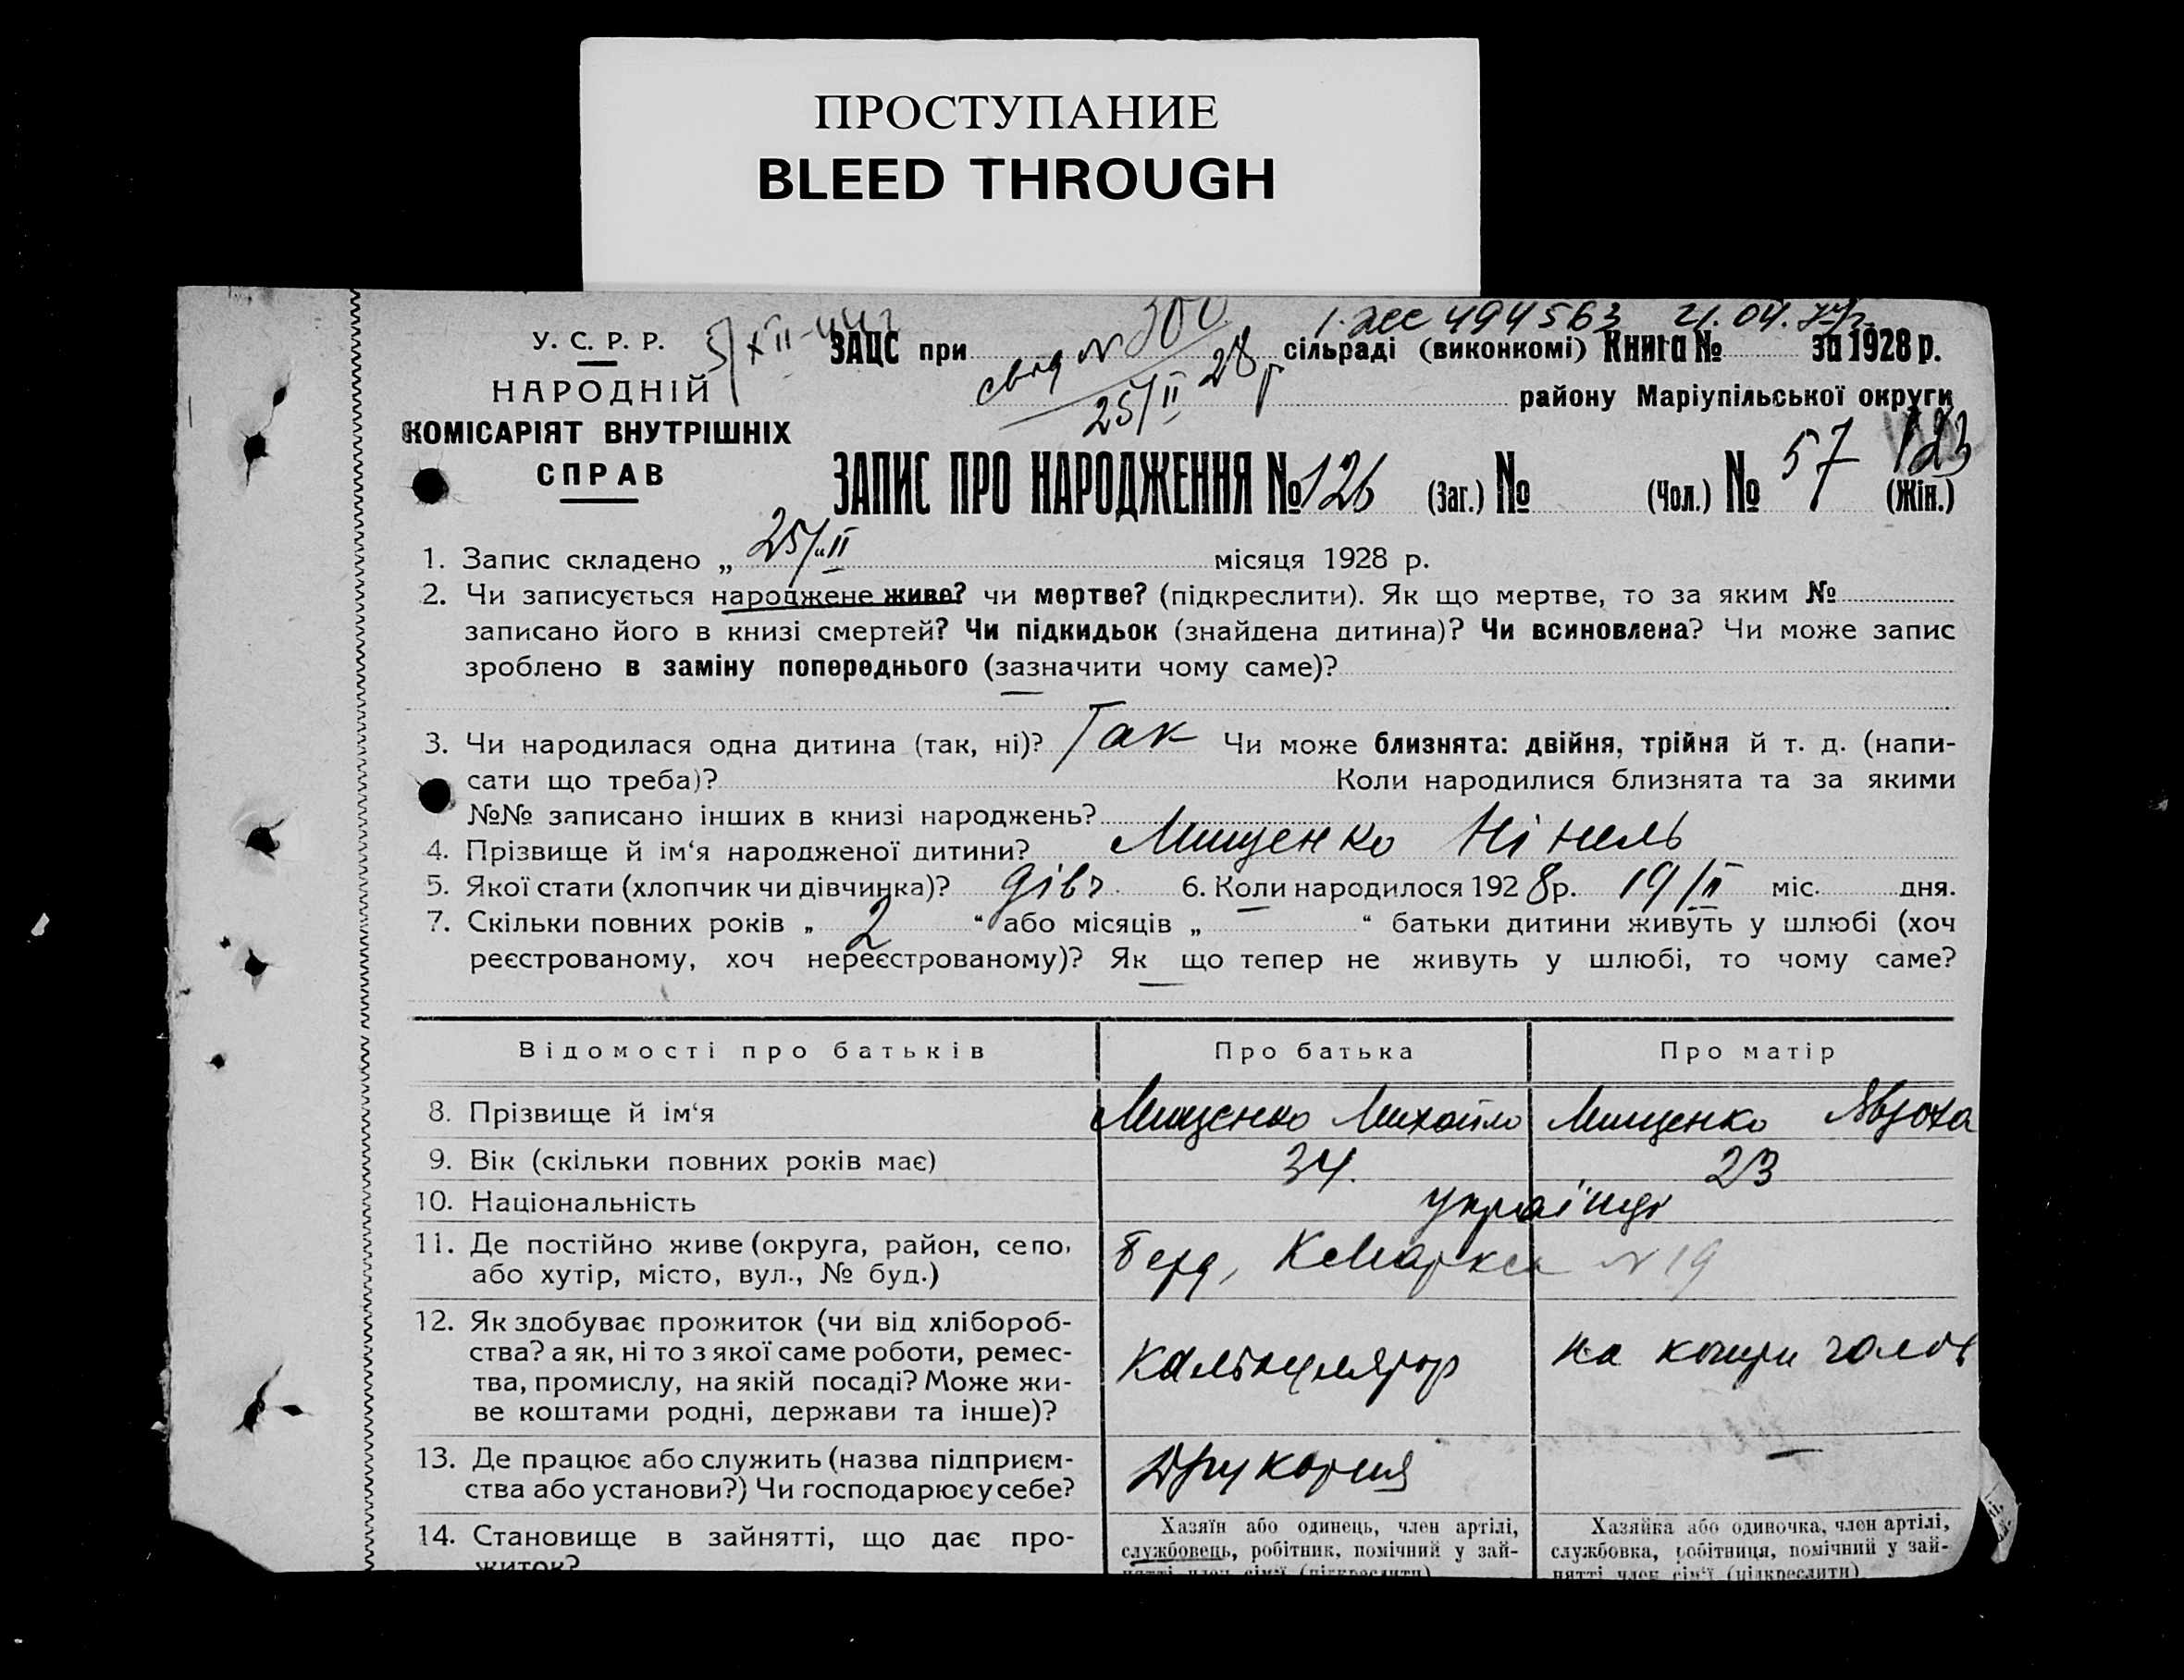 ПРОСТУПАНИЕ
BLEED THROUGH
5/XII-44г 300 1. ЖС 494563 21.04.77г.
У. С. Р. Р.
ЗАЦС при свід N 28 р сільраді (виконкомі) Книга № за 1928 р.
НАРОДНІЙ
25/II району Маріупільської округи
КОМІСАРІЯТ ВНУТРІШНІХ
СПРАВ
123
ЗАПИС ПРО НАРОДЖЕННЯ № 126 (Заг.) № (Чол.) № 57 (Жін.)
1. Запис складено „ 25/II місяця 1928 р.
2. Чи записується народжене живе? чи мертве? (підкреслити). Як що мертве, то за яким №
записано його в книзі смертей? Чи підкидьок (знайдена дитина)? Чи всиновлена? Чи може запис
зроблено в заміну попереднього (зазначити чому саме)?
3. Чи народилася одна дитина (так, ні)? Так Чи може близнята: двійня, трійня й т. д. (напи-
сати що треба)? Коли народилися близнята та за якими
№№ записано інших в книзі народжень?
4. Прізвище й ім‘я народженої дитини? Мищенко Нінель
5. Якої стати (хлопчик чи дівчинка)? дівч. 6. Коли народилося 1928 р. 19/II міс. дня.
7. Скільки повних років „ 2 “ або місяців „ “ батьки дитини живуть у шлюбі (хоч
реєстрованому, хоч нереєстрованому)? Як що тепер не живуть у шлюбі, то чому саме?
Відомості про батьків Про батька Про матір
8. Прізвище й ім‘я Мищенко Михайло Мищенко Явдоха
9. Вік (скільки повних років має) 34. 23
10. Національність українці
11. Де постійно живе (округа, район, село,
або хутір, місто, вул., № буд.) Берд, К Маркса N 19
12. Як здобуває прожиток (чи від хлібороб-
ства? а як, ні то з якої саме роботи, ремес-
тва, промислу, на якій посаді? Може жи-
ве коштами родні, держави та інше)?
Калькулятор на кошти чолов
13. Де працює або служить (назва підприєм-
ства або установи?) Чи господарює у себе?
Друкарня —
14. Становище в зайнятті, що дає про-
житок?
Хазяїн або одинець, член артілі,
службовець, робітник, помічний у зай-
нятті член сім‘ї (підкреслити)
Хазяйка або одиночка, член артілі,
службовка, робітниця, помічний у зай-
нятті член сім‘ї (підкреслити)